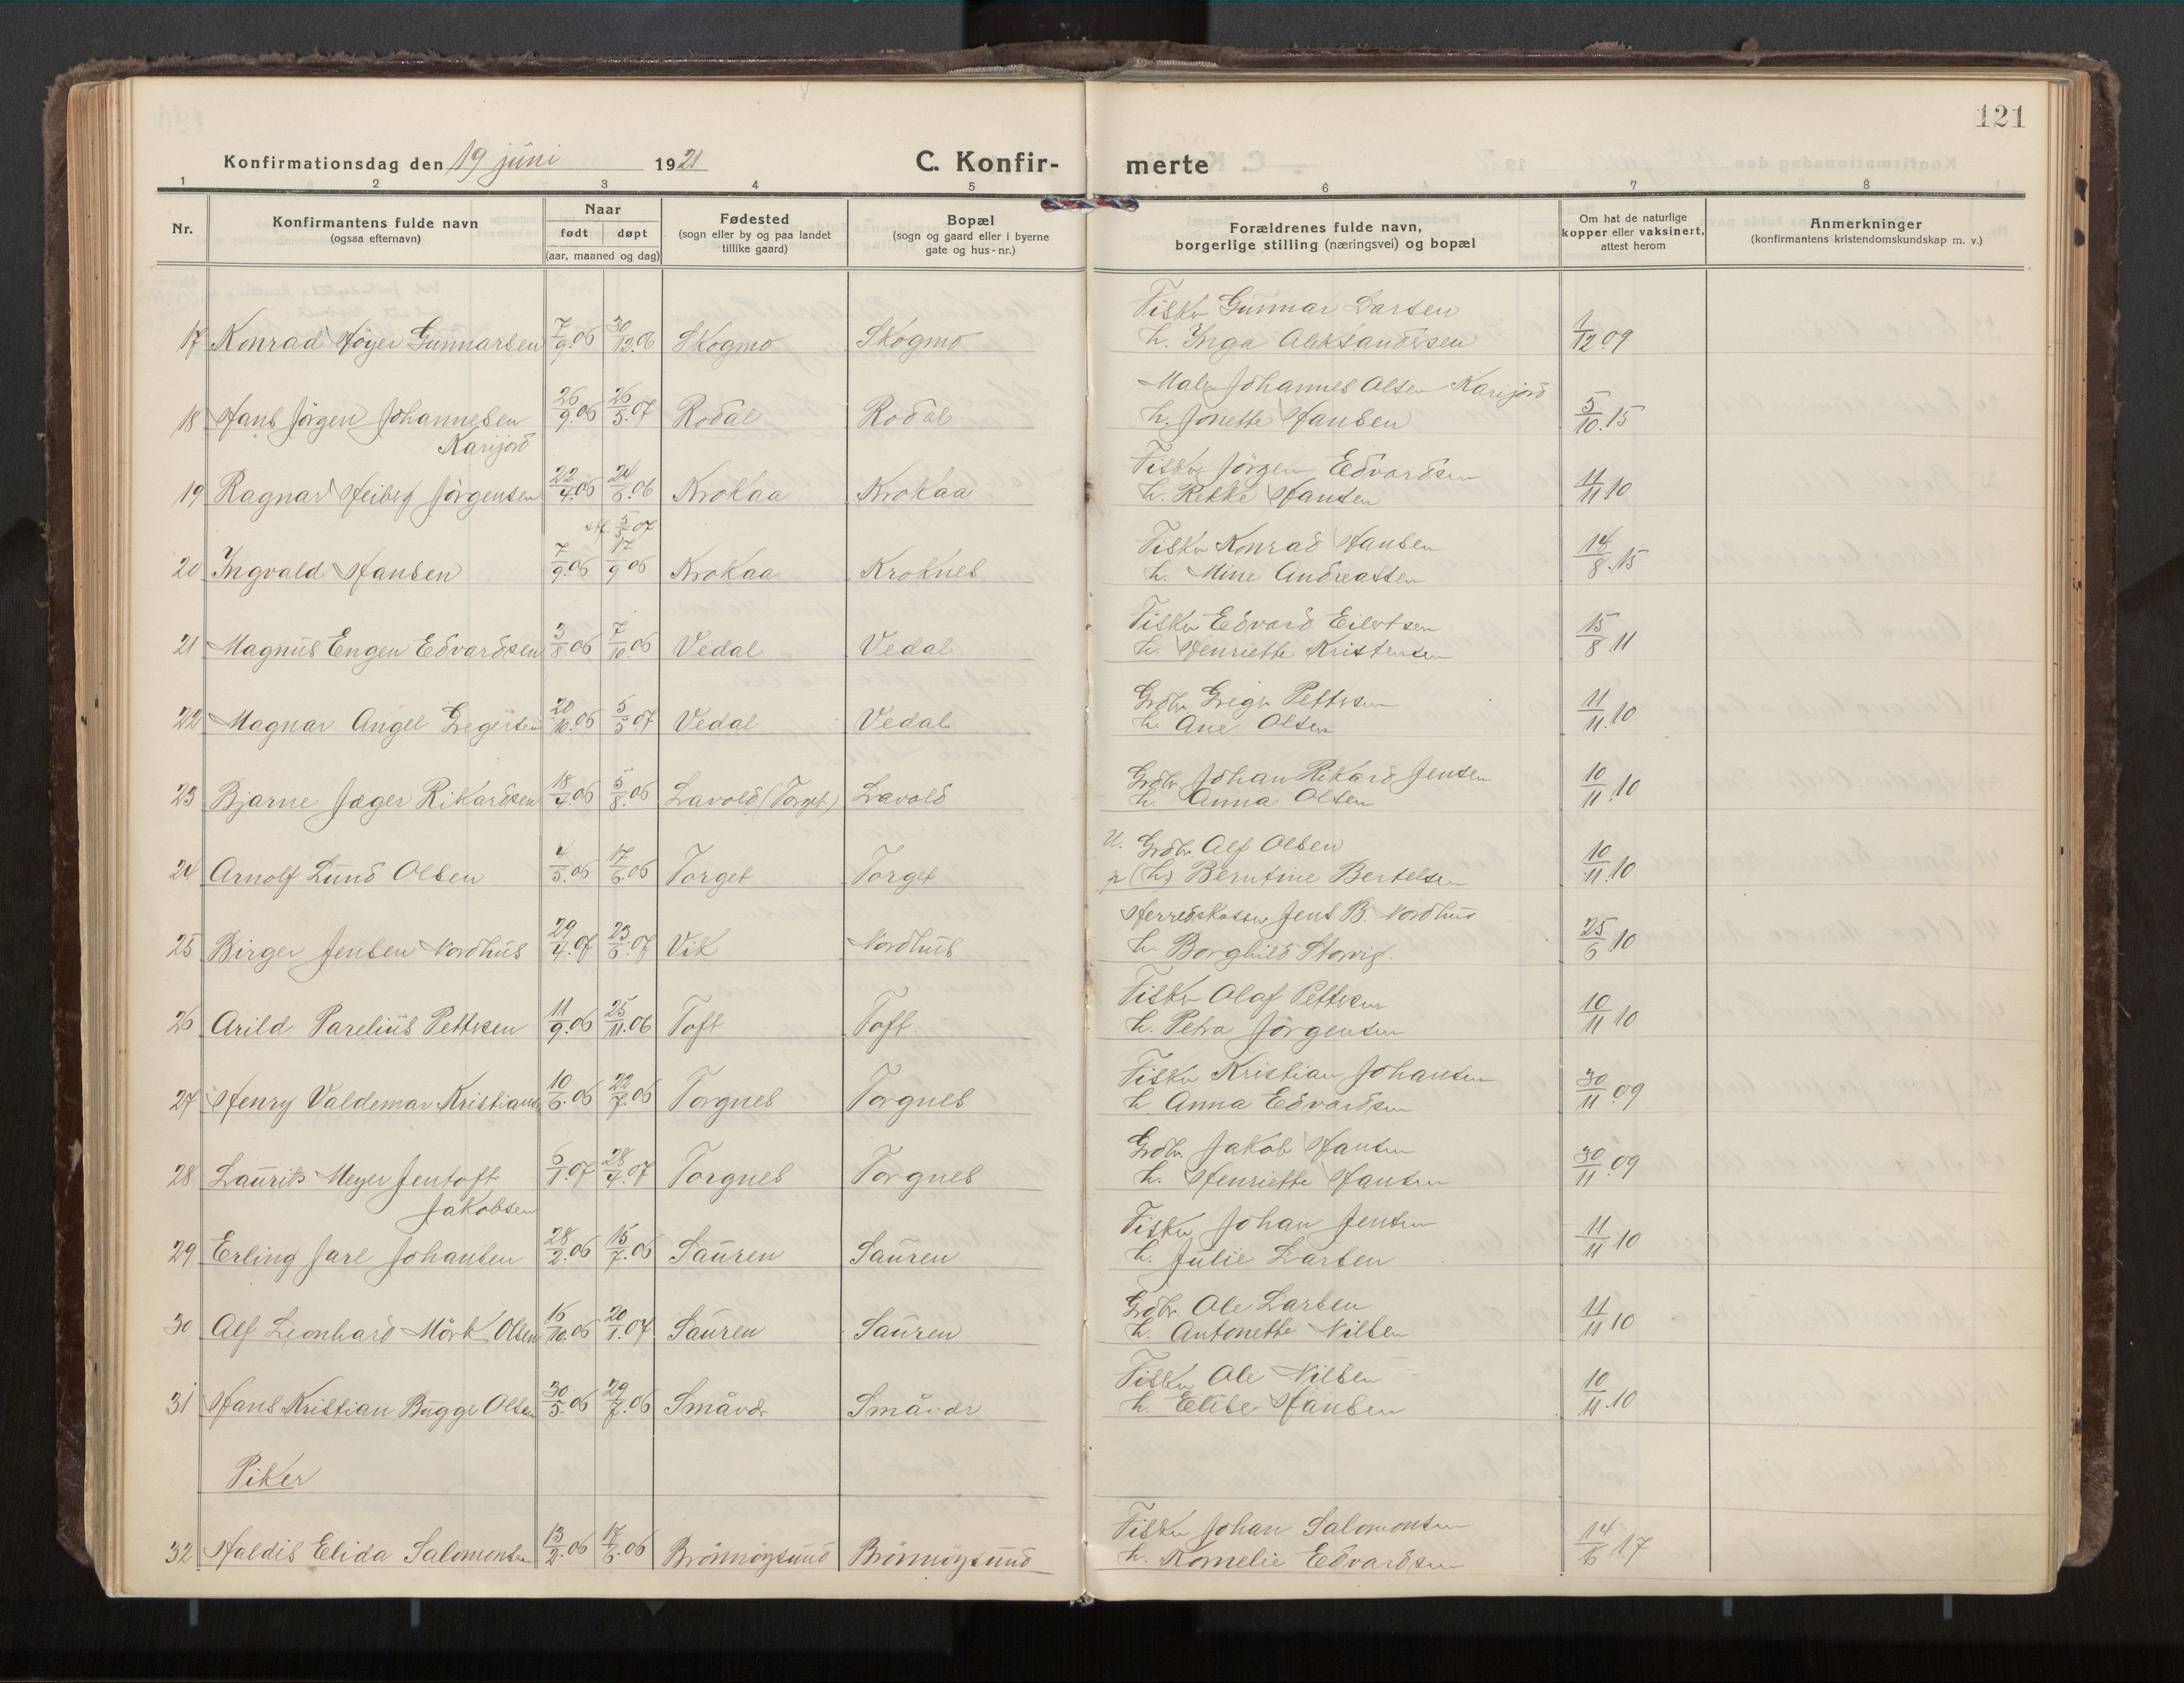 121
Konfirmationsdag den 19 juni 1921 C. Konfir- merte
1 2 3 4 5 6 7 8
Nr. Konfirmantens fulde navn (ogsaa efternavn) Naar født døpt (aar, maaned og dag) Fødested (sogn eller by og paa landet tillike gaard) Bopæl (sogn og gaard eller i byerne gate og hus-nr.) Forældrenes fulde navn, borgerlige stilling (næringsvei) og bopæl Om hat de naturlige kopper eller vaksinert, attest herom Anmerkninger (konfirmantens kristendomskundskap m. v.)
Fisker Gunnar Larsen
17 Konrad Höyer Gunnarsen 7/9.06 30/12.06 Skogmo Skogmo h. Inga Aleksandersen 1/12 09
Maler Johannes Olsen Karijord
18 Hans Jörgen Johannesen 26/9.06 26/5.07 Rodal Rodal h. Jonette Hansen 5/10.15
Karijord
Fisker Jörgen Edvardsen
19 Ragnar Heiberg Jörgensen 22/4.06 24/6.06 Krokaa Krokaa h. Rekke Hansen 11/11 10
5/5 07
Fisker Konrad Hansen
20 Ingvald Hansen 7/9.06 17/9 06 Krokaa Kroknes h. Mine Andreassen 14/8.15
Fisker Edvard Eilertsen
21 Magnus Engen Edvardsen 3/8.06 7/10.06 Vedal Vedal h. Henriette Kristensen 15/8 11
Grdbr. Greger Pettersen
22 Magnar Angel Gregersen 20/10.06 5/5.07 Vedal Vedal h. Ane Olsen 11/11.10
Grdbr. Johan Rikard Jensen
23 Bjarne Jæger Rikardsen 18/4.06 5/8.06 Lavold (Torget) Lavold h. Anna Olsen 10/11.10
U. Grdbr. Alf Olsen
24 Arnolf Lund Olsen 4/5.06 17/6.06 Torget Torget p (h) Berntine Bertelsen 10/11.10
Herredskasser Jens B. Nordhus
25 Birger Jensen Nordhus 29/4.07 23/6.07 Vik Nordhus h. Borghild Storvig. 25/6.10
Fisker Olaf Pettersen
26 Arild Parelius Pettersen 11/9.06 25/11.06 Toft Toft. h. Petra Jörgensen 10/11 10
Fisker Kristian Johansen
27 Henry Valdemar Kristiansen 10/6.06 22/7.06 Torgnes Torgnes h. Anna Edvardsen 30/11.09
Grdbr. Jakob Hansen
28 Laurits Meyer Jentoft 6/1.07 28/4.07 Torgnes Torgnes h. Henriette Hansen 30/11.09
Jakobsen
Fisker Johan Jensen
29 Erling Jarl Johansen 28/2.06 15/7.06 Sauren Sauren h. Julie Larsen 11/11 10
Grdbr. Ole Larsen
30 Alf Leonhard Mörk Olsen 16/10.06 20/1.07 Sauren Sauren h. Antonette Nilsen 11/11 10
Fisker Ole Nilsen
31 Hans Kristian Bugge Olsen 30/5.06 29/7.06 Småvær Småvær h. Elise Hansen 10/11.10
Piker
Fisker Johan Salomonsen
32 Haldis Elida Salomonsen 13/2.06 17/6.06 Brönnöysund Brönnöysund h. Kornelie Edvardsen 14/6 17